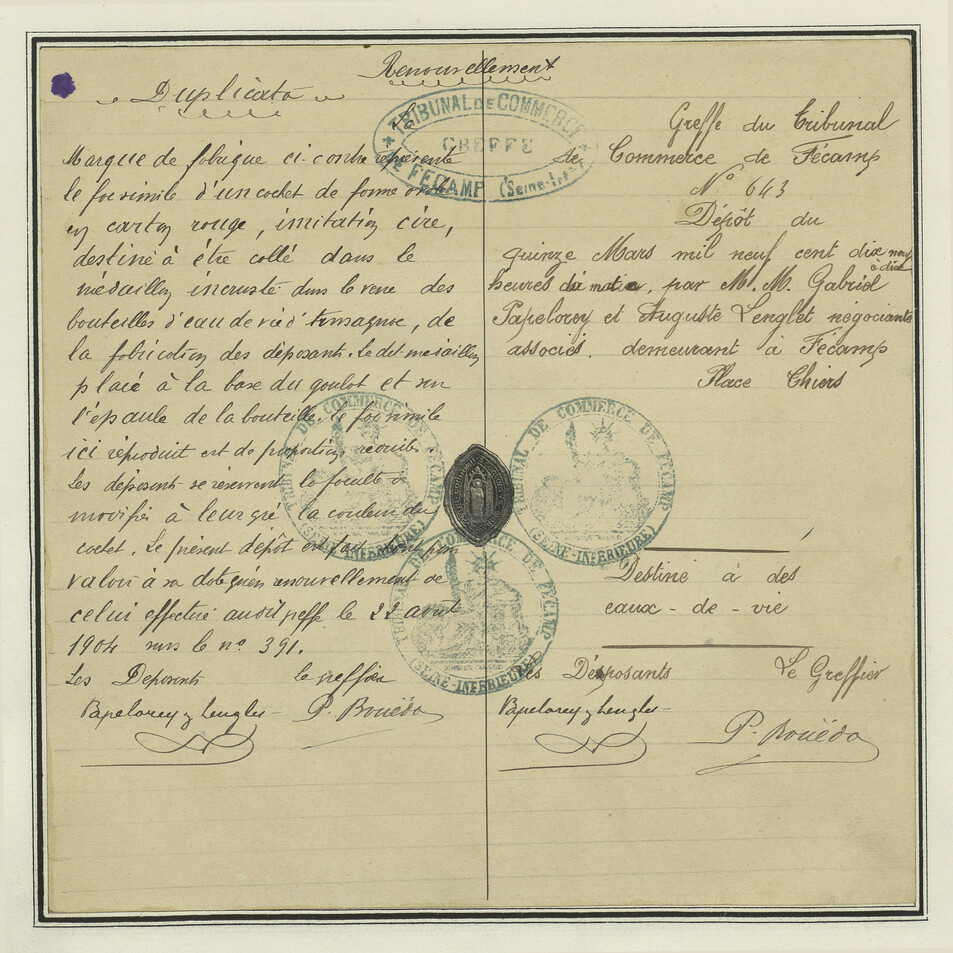 Renouvellement
Duplicata
TRIBUNAL DE COMMERCE
GREFFE
DE FÉCAMP (Seine-Infre)
Marque de fabrique ci-contre représente
le facsimile d'un cachet de forme ovale
en carton rouge, imitation cire,
destiné à être collé dans le
médaillon incrusté dans le verre des
bouteilles d'eau de vie d'Armagnac, de
la fabrication des déposants. Le dit médaillon
placé à la base du goulot et sur
l'épaule de la bouteille. Le facsimile
ici reproduit est de proportions réduites.
Les déposants se réservent la faculté de
modifier à leur gré la couleur du
cachet. Le présent dépôt est fait tant pour
valoir à sa date qu'en renouvellement de
celui effectué audit greffe le 22 août
1904 sous le no 391.
Les Déposants le greffier
Papelorey & Lenglet P. Bouëdo
Greffe du Tribunal
de Commerce de Fécamp
No 643
Dépôt du
quinze Mars mil neuf cent dix neuf
à dix
heures du matin, par M.M. Gabriel
Papelorey et Auguste Lenglet négociants
associés, demeurant à Fécamp
Place Thiers
TRIBUNAL DE COMMERCE DE FECAMP
(SEINE-INFERIEURE)
TRIBUNAL DE COMMERCE DE FECAMP
(SEINE-INFERIEURE)
TRIBUNAL DE COMMERCE DE FECAMP
(SEINE-INFERIEURE)
Destiné à des
eaux-de-vie
Les Déposants Le Greffier
Papelorey & Lenglet P. Bouëdo